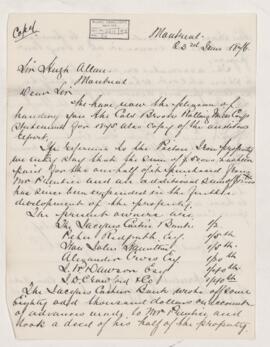 Copy
Montreal
23rd June 1876
Sir Hugh Allan
Montreal
Dear Sir
We have now the pleasure of
handing you the Cold Brook Rolling Mills Coys
Statement for 1875 also copy of the auditors
report.
In reference to the Pictou Iron property
we may say that the sum of $ was
paid for the one half of it purchased from
Mr and an additional sum of
has since been expended in the further
development of the property.
The present owners are
The Jacques Cartier Bank 1/2
Peter Redpath Esq. 1/10th
1/10th
Alexander Esq 1/10th
J. W. Dawson Esq 1/40th
J. D. Crawford & Co 1/40th
The Jacques Cartier Bank wrote off some
Eighty odd thousand dollars on account
of advances made to Mr and
took a deed of his half of the property